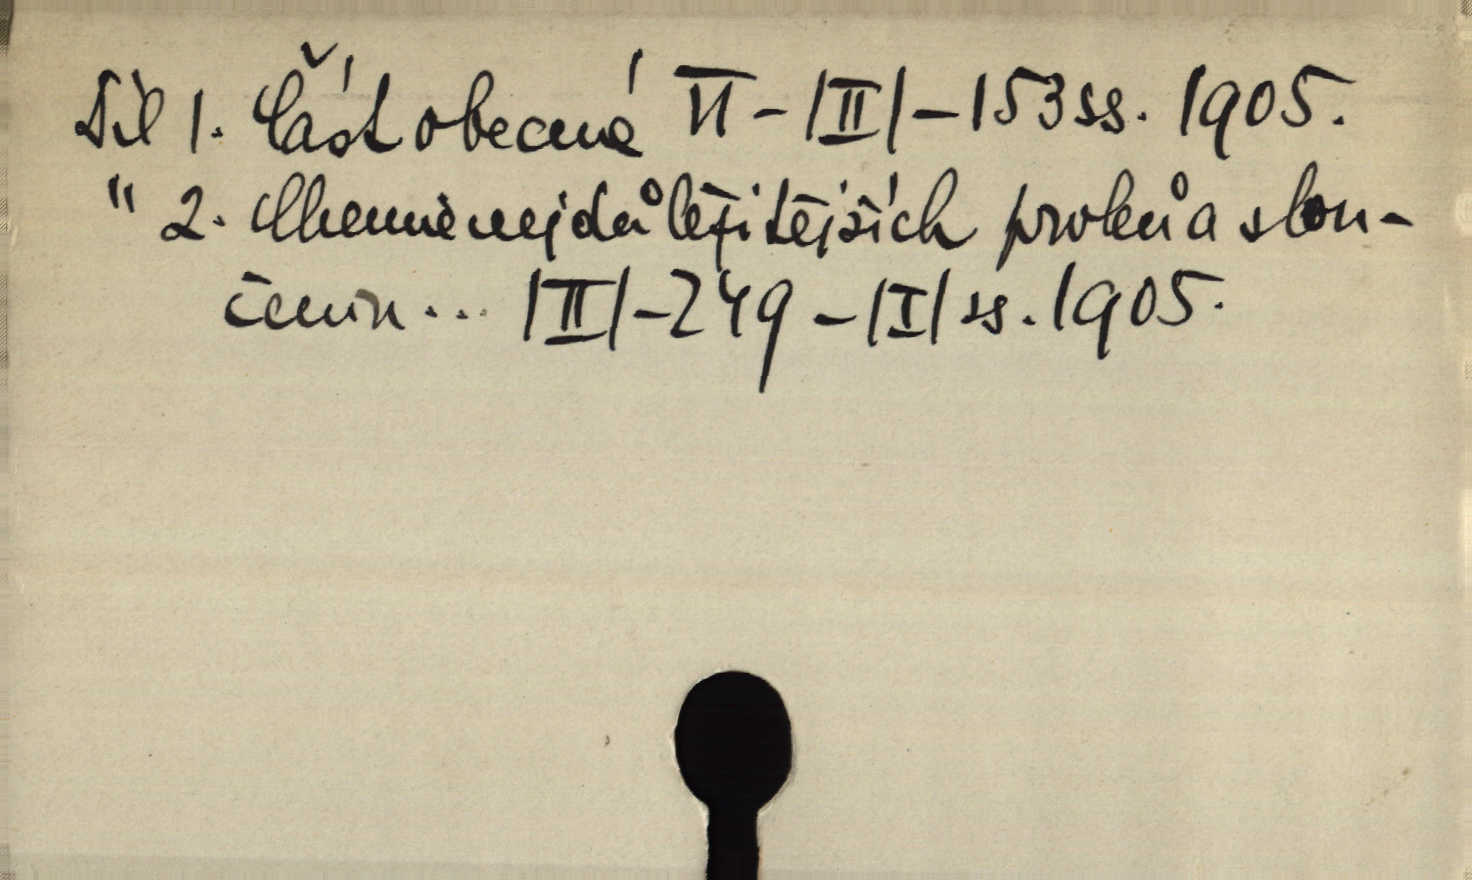 Díl 1. Část obecná VI-|II|-153 ss. 1905.
" 2. Chemie nejdůležitějších prvků a slou-
čenin... |II|-249-|I| ss. 1905.